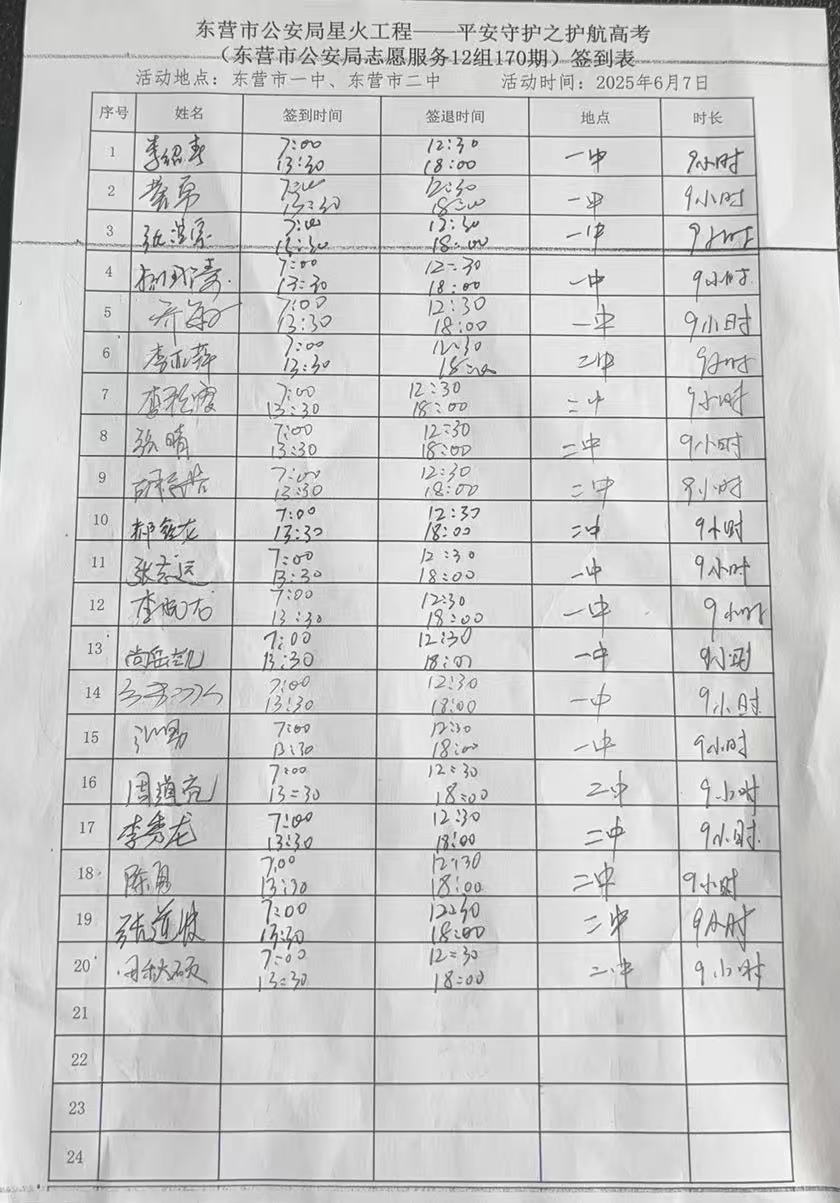 东营市公安局星火工程——平安守护之护航高考
（东营市公安局志愿服务12组170期）签到表
活动地点：东营市一中、东营市二中 活动时间：2025年6月7日
序号 姓名 签到时间 签退时间 地点 时长
1 李绍春 7:00 13:30 12:30 18:00 一中 9小时
2 7:00 13:30 12:30 18:00 一中 9小时
3 7:00 13:30 12:30 18:00 一中 9小时
4 7:00 13:30 12:30 18:00 一中 9小时
5 7:00 13:30 12:30 18:00 一中 9小时
6 李亚萍 7:00 13:30 12:30 18:00 二中 9小时
7 7:00 13:30 12:30 18:00 二中 9小时
8 张晴 7:00 13:30 12:30 18:00 二中 9小时
9 7:00 13:30 12:30 18:00 二中 9小时
10 7:00 13:30 12:30 18:00 二中 9小时
11 张志远 7:00 13:30 12:30 18:00 一中 9小时
12 7:00 13:30 12:30 18:00 一中 9小时
13 尚岳凯 7:00 13:30 12:30 18:00 一中 9小时
14 7:00 13:30 12:30 18:00 一中 9小时
15 7:00 13:30 12:30 18:00 一中 9小时
16 周道亮 7:00 13:30 12:30 18:00 二中 9小时
17 李秀龙 7:00 13:30 12:30 18:00 二中 9小时
18 陈勇 7:00 13:30 12:30 18:00 二中 9小时
19 张道波 7:00 13:30 12:30 18:00 二中 9小时
20 7:00 13:30 12:30 18:00 二中 9小时
21
22
23
24